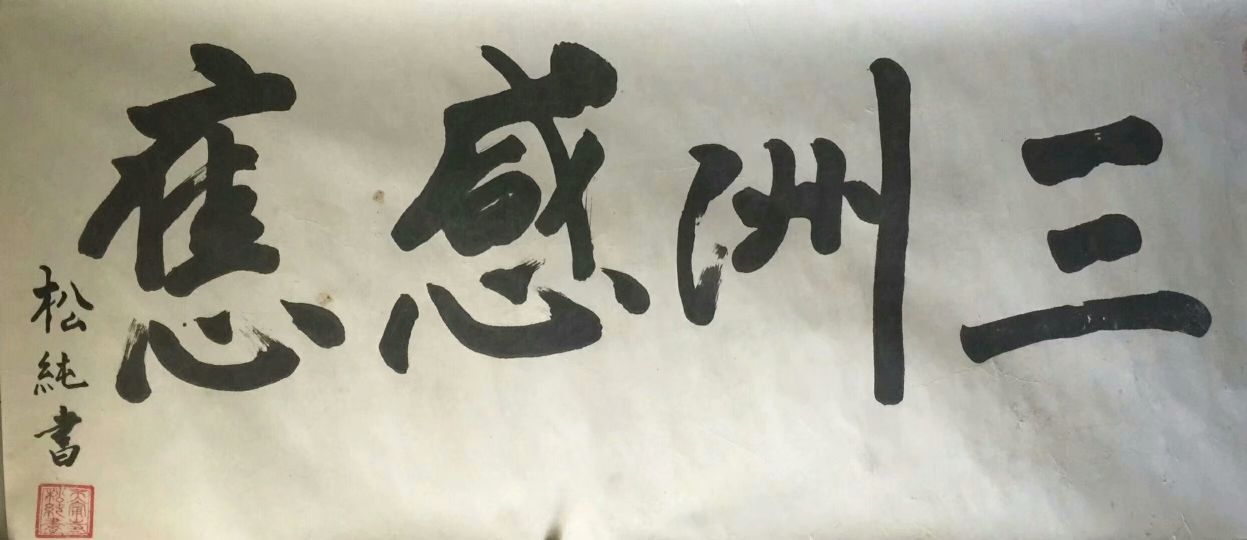 三洲感應
松純書